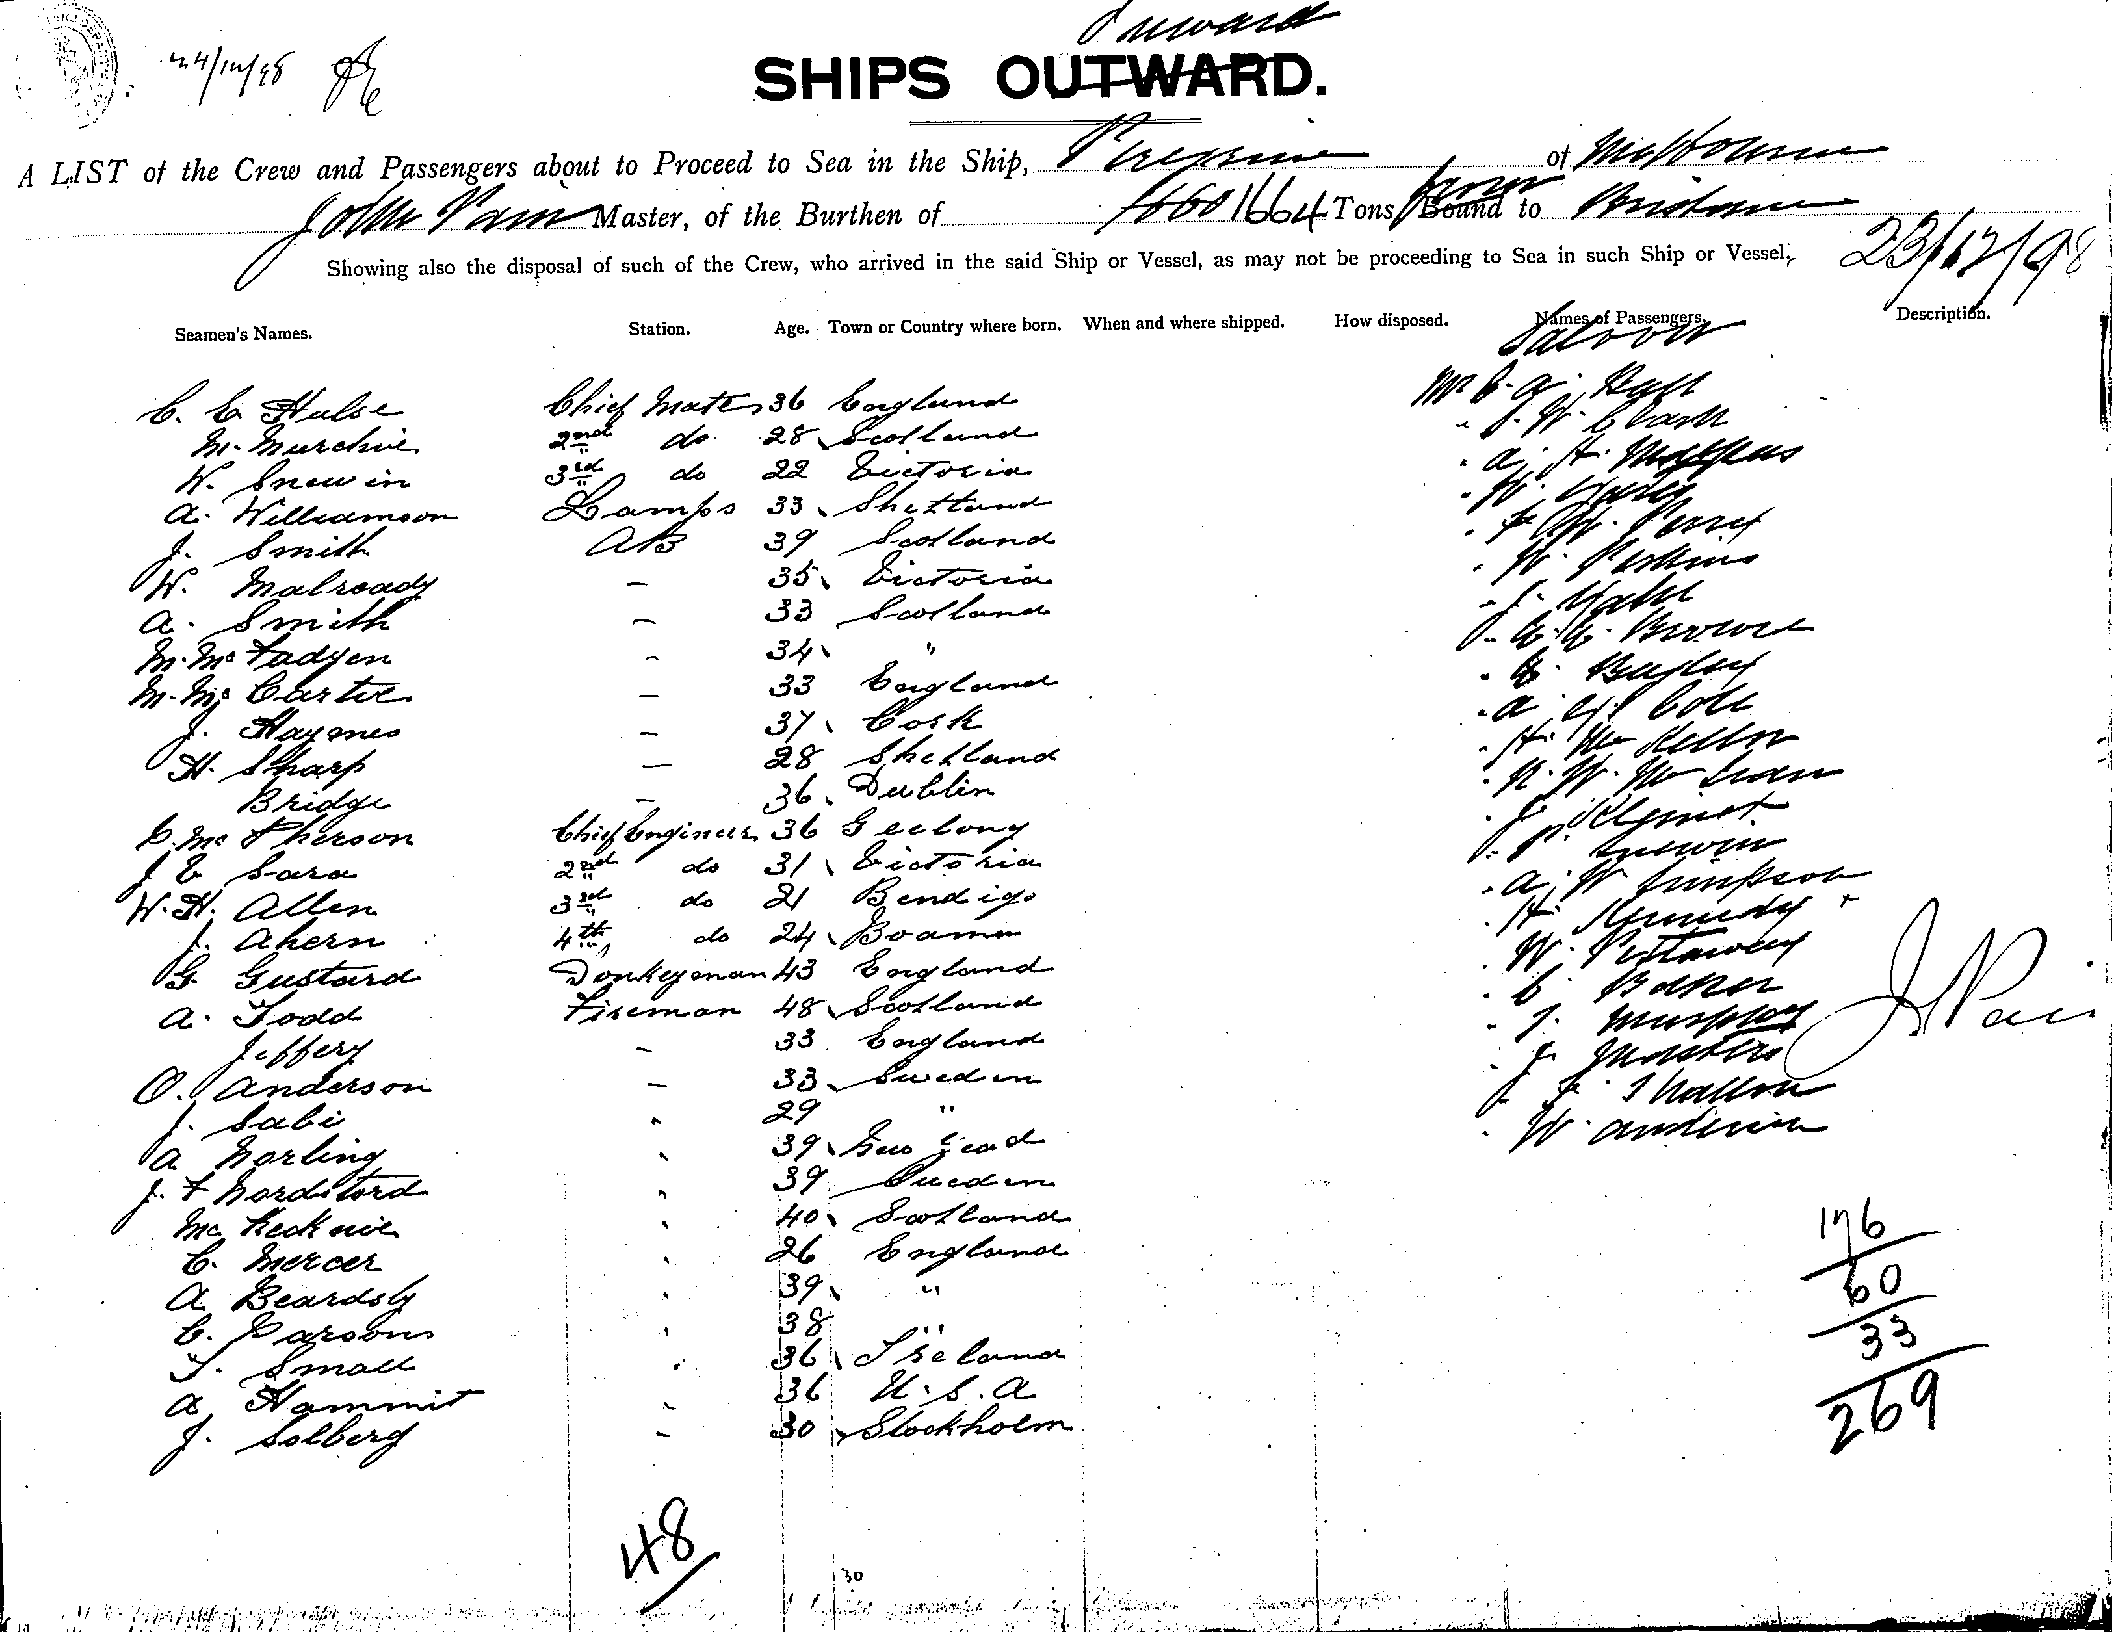 Inward
24/12/98
SHIPS OUTWARD.
A LIST of the Crew and Passengers about to Proceed to Sea in the Ship, Peregrine of Melbourne
John Pain Master, of the Burthen of 1660 1664 Tons from Bound to Brisbane
Showing also the disposal of such of the Crew, who arrived in the said Ship or Vessel, as may not be proceeding to Sea in such Ship or Vessel, 23/12/98
Seamen's Names. Station. Age. Town or Country where born. When and where shipped. How disposed. Names of Passengers. Description.
Saloon
C. E Hulse Chief Mate 36 England Mr C. A. Hall
M. Murchie 2nd do. 28 Scotland " J. W. Clark
W. Snewin 3rd do 22 Victoria " A. H.
A. Williamson Lamps 33 Shetland " W.
J. Smith AB 39 Scotland " Perry
W. Malready - 35 Victoria " W. Perkins
A. Smith - 33 Scotland " J.
M. McFadyen - 34 " " Browne
M. McCartie - 33 England " Bayley
J. Haymes - 37 Cork " A. Cole
H. Sharp - 28 Shetland " H. Mc Kellor
Bridge - 36 Dublin " N. W. Mc Lean
C. McPherson Chief Engineer 36 Geelong " J.
J E Sara 2nd do 31 Victoria " P. Snewin
W. H. Allen 3rd do 21 Bendigo " A. W. Simpson
J. Ahern 4th do 24 " H. Kennedy
G. Gustard Donkeyman 43 England " W. Pettaway
A. Todd Fireman 48 Scotland " C. Baker
Jeffery - 33 England " J. Murphy
O. Anderson - 33 Sweden " J. Masters
J. Sabi " 29 " " Shallon
A Norling " 39 New Zead " W. Anderson
J. F Nordstord " 39 Sweden
Mc Kecknie " 40 Scotland
C. Mercer " 26 England
A Beardsly " 39 "
C. Parsons " 38 "
T. Small " 36 Ireland
A Hammit " 36 U.S.A
J. Solberg - 30 Stockholm
J Pain
176
60
33
269
48
30